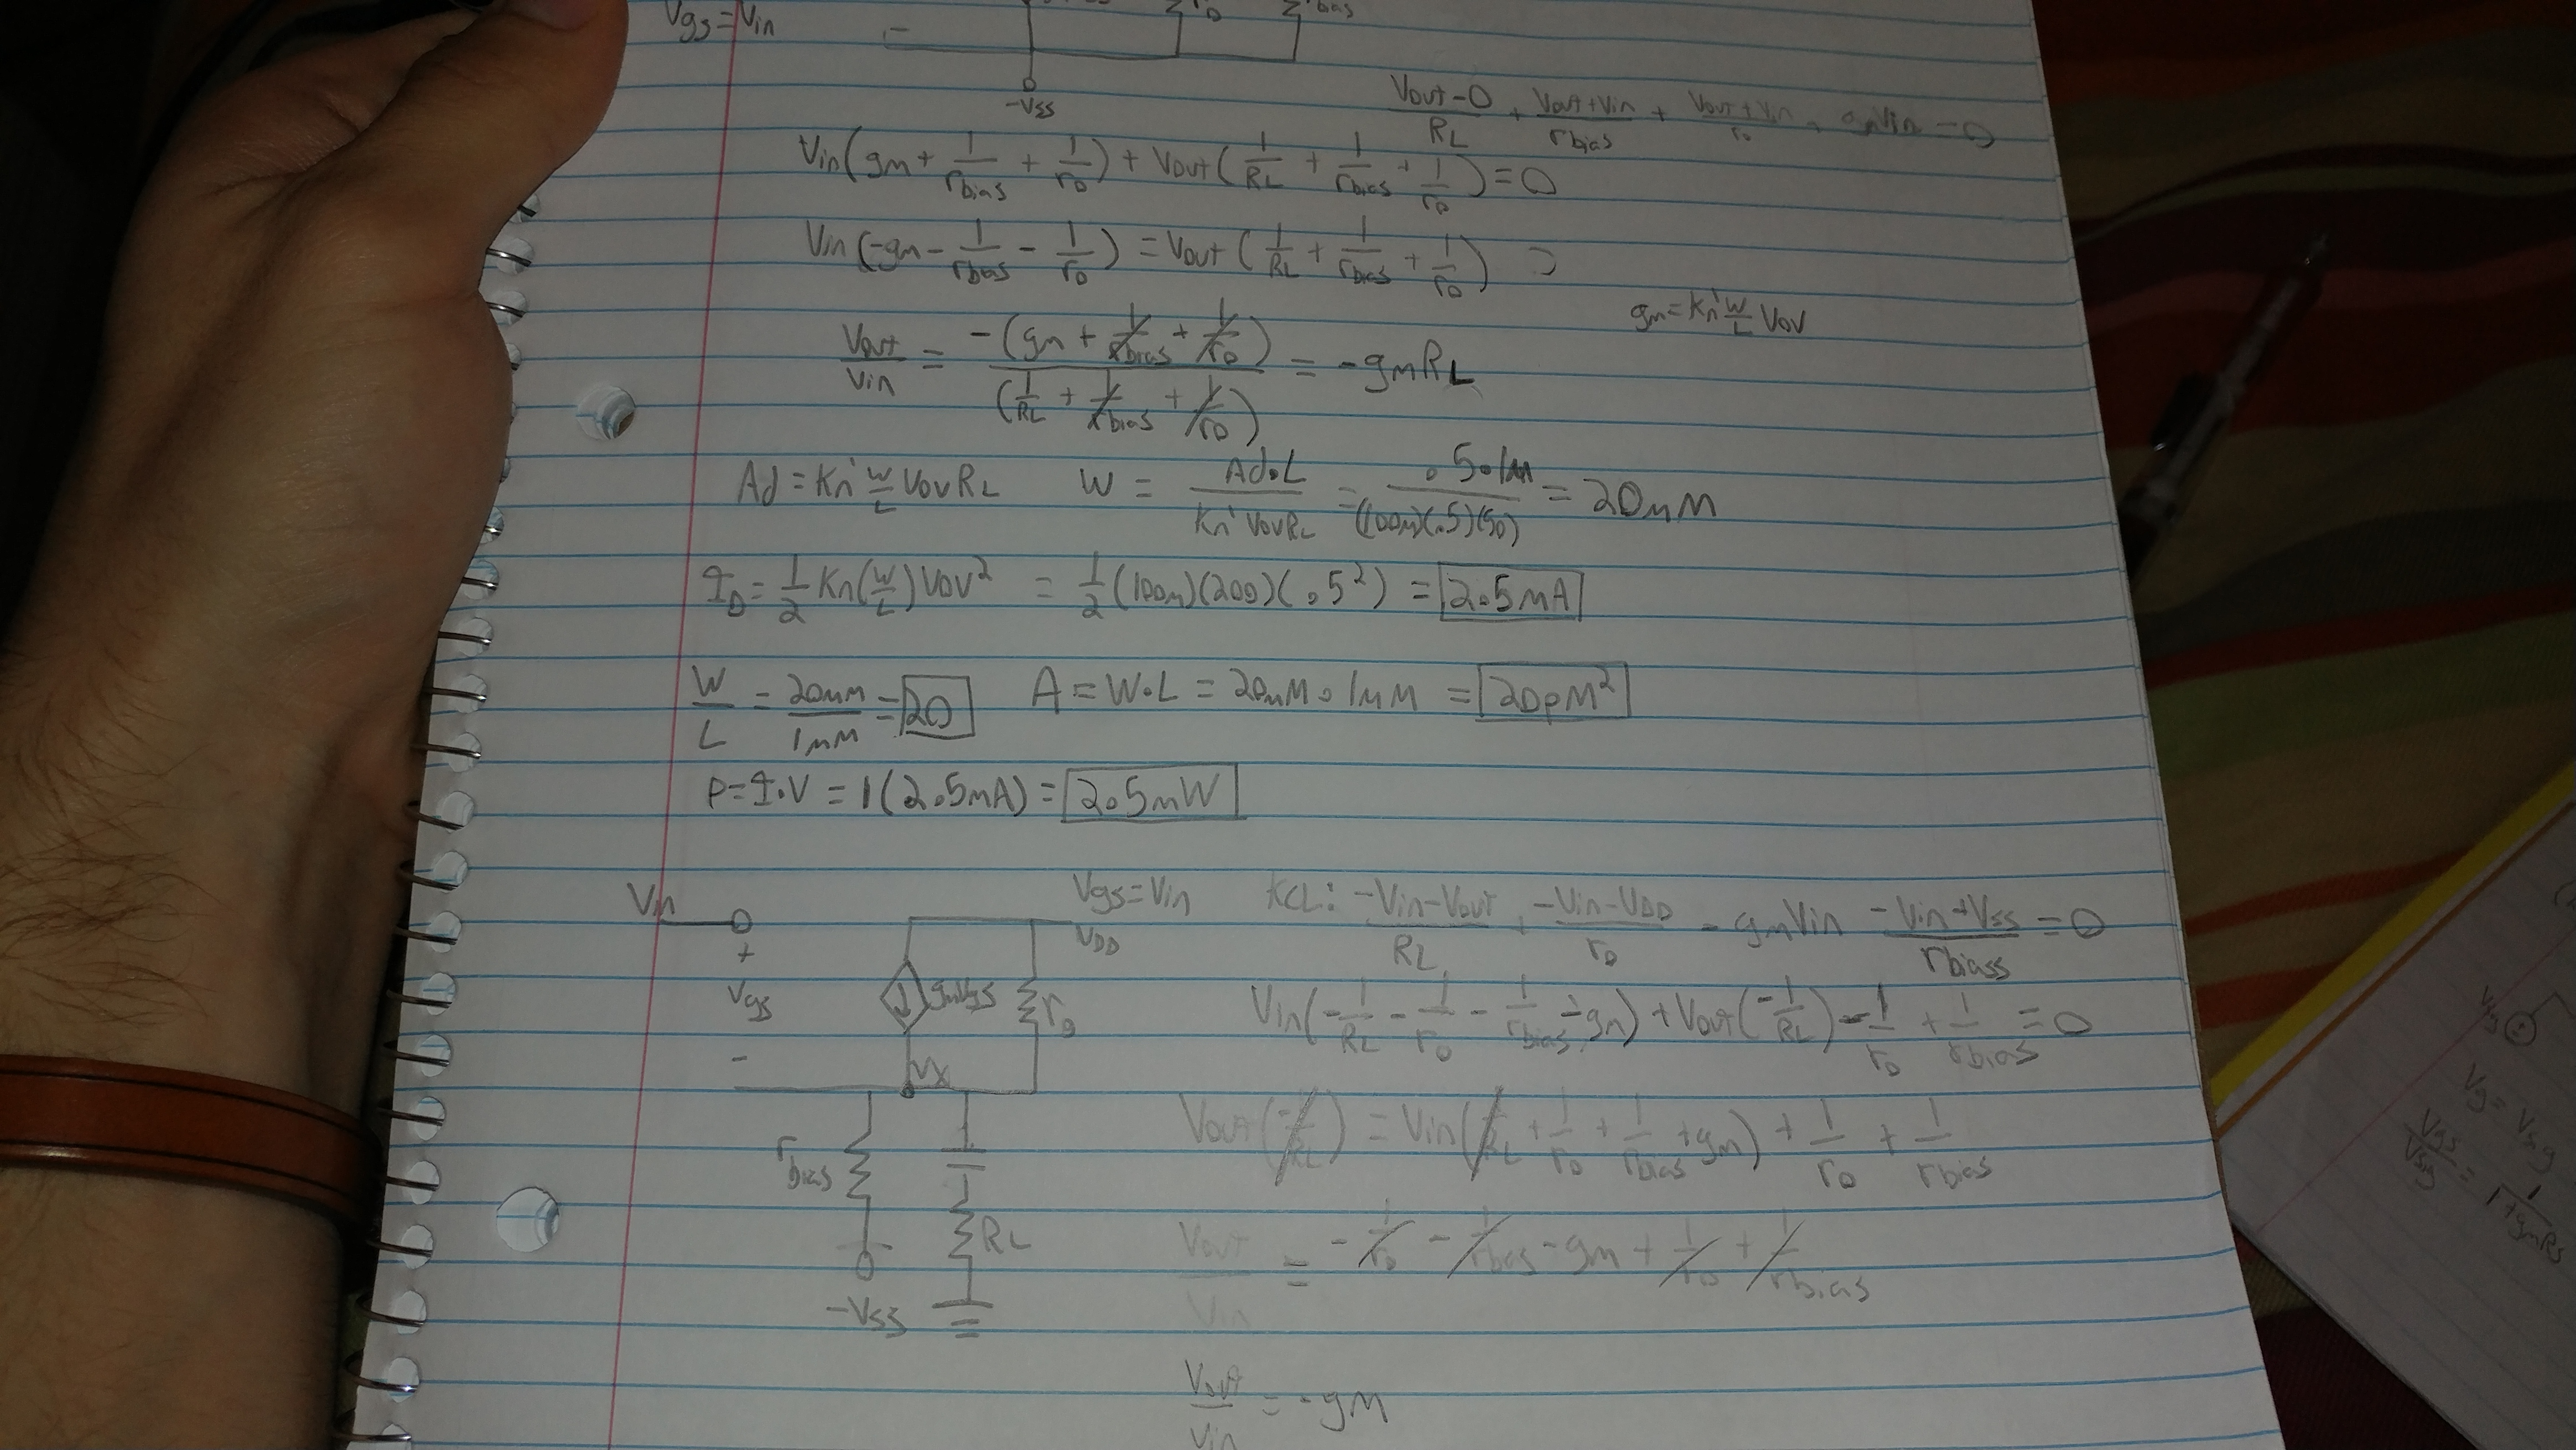 Vgs=Vin
rD
bias
-Vss
(Vout-0)/RL + (Vout+Vin)/rbias + (Vout+Vin)/ro + gmVin = 0
Vin(gm + 1/rbias + 1/rD) + Vout(1/RL + 1/rbias + 1/rD) = 0
Vin(-gm - 1/rbias - 1/rD) = Vout(1/RL + 1/rbias + 1/rD)
gm = Kn' W/L Vov
Vout/Vin = -(gm + 1/rbias + 1/rD) / (1/RL + 1/rbias + 1/rD) = -gmRL
Ad = Kn' W/L VovRL W = Ad·L / Kn' VovRL = .5·1μ / (100μ)(.5)(50) = 20μM
ID = 1/2 Kn(W/L)Vov² = 1/2 (100μ)(200)(.5²) = 2.5mA
W/L = 20μM/1μM = 20 A = W·L = 20μM · 1μM = 20pM²
P=I·V = 1(2.5mA) = 2.5mW
Vin
Vgs=Vin KCL: (-Vin-Vout)/RL + (-Vin-VDD)/rD - gmVin (-Vin+Vss)/rbiass = 0
VDD
+
Vgs
-
gmVgs
ro
Vin(-1/RL - 1/rD - 1/rbias - gm) + Vout(-1/RL) - 1/rD + 1/rbias = 0
Vx
Vout(-1/RL) = Vin(1/RL + 1/rD + 1/rbias + gm) + 1/rD + 1/rbias
rbias
RL
Vout/Vin = -1/rD - 1/rbias - gm + 1/rD + 1/rbias
-Vss
Vout/Vin = -gm
Vsig
Vg = Vsig
Vgs/Vsig = 1/(1+gmRs)